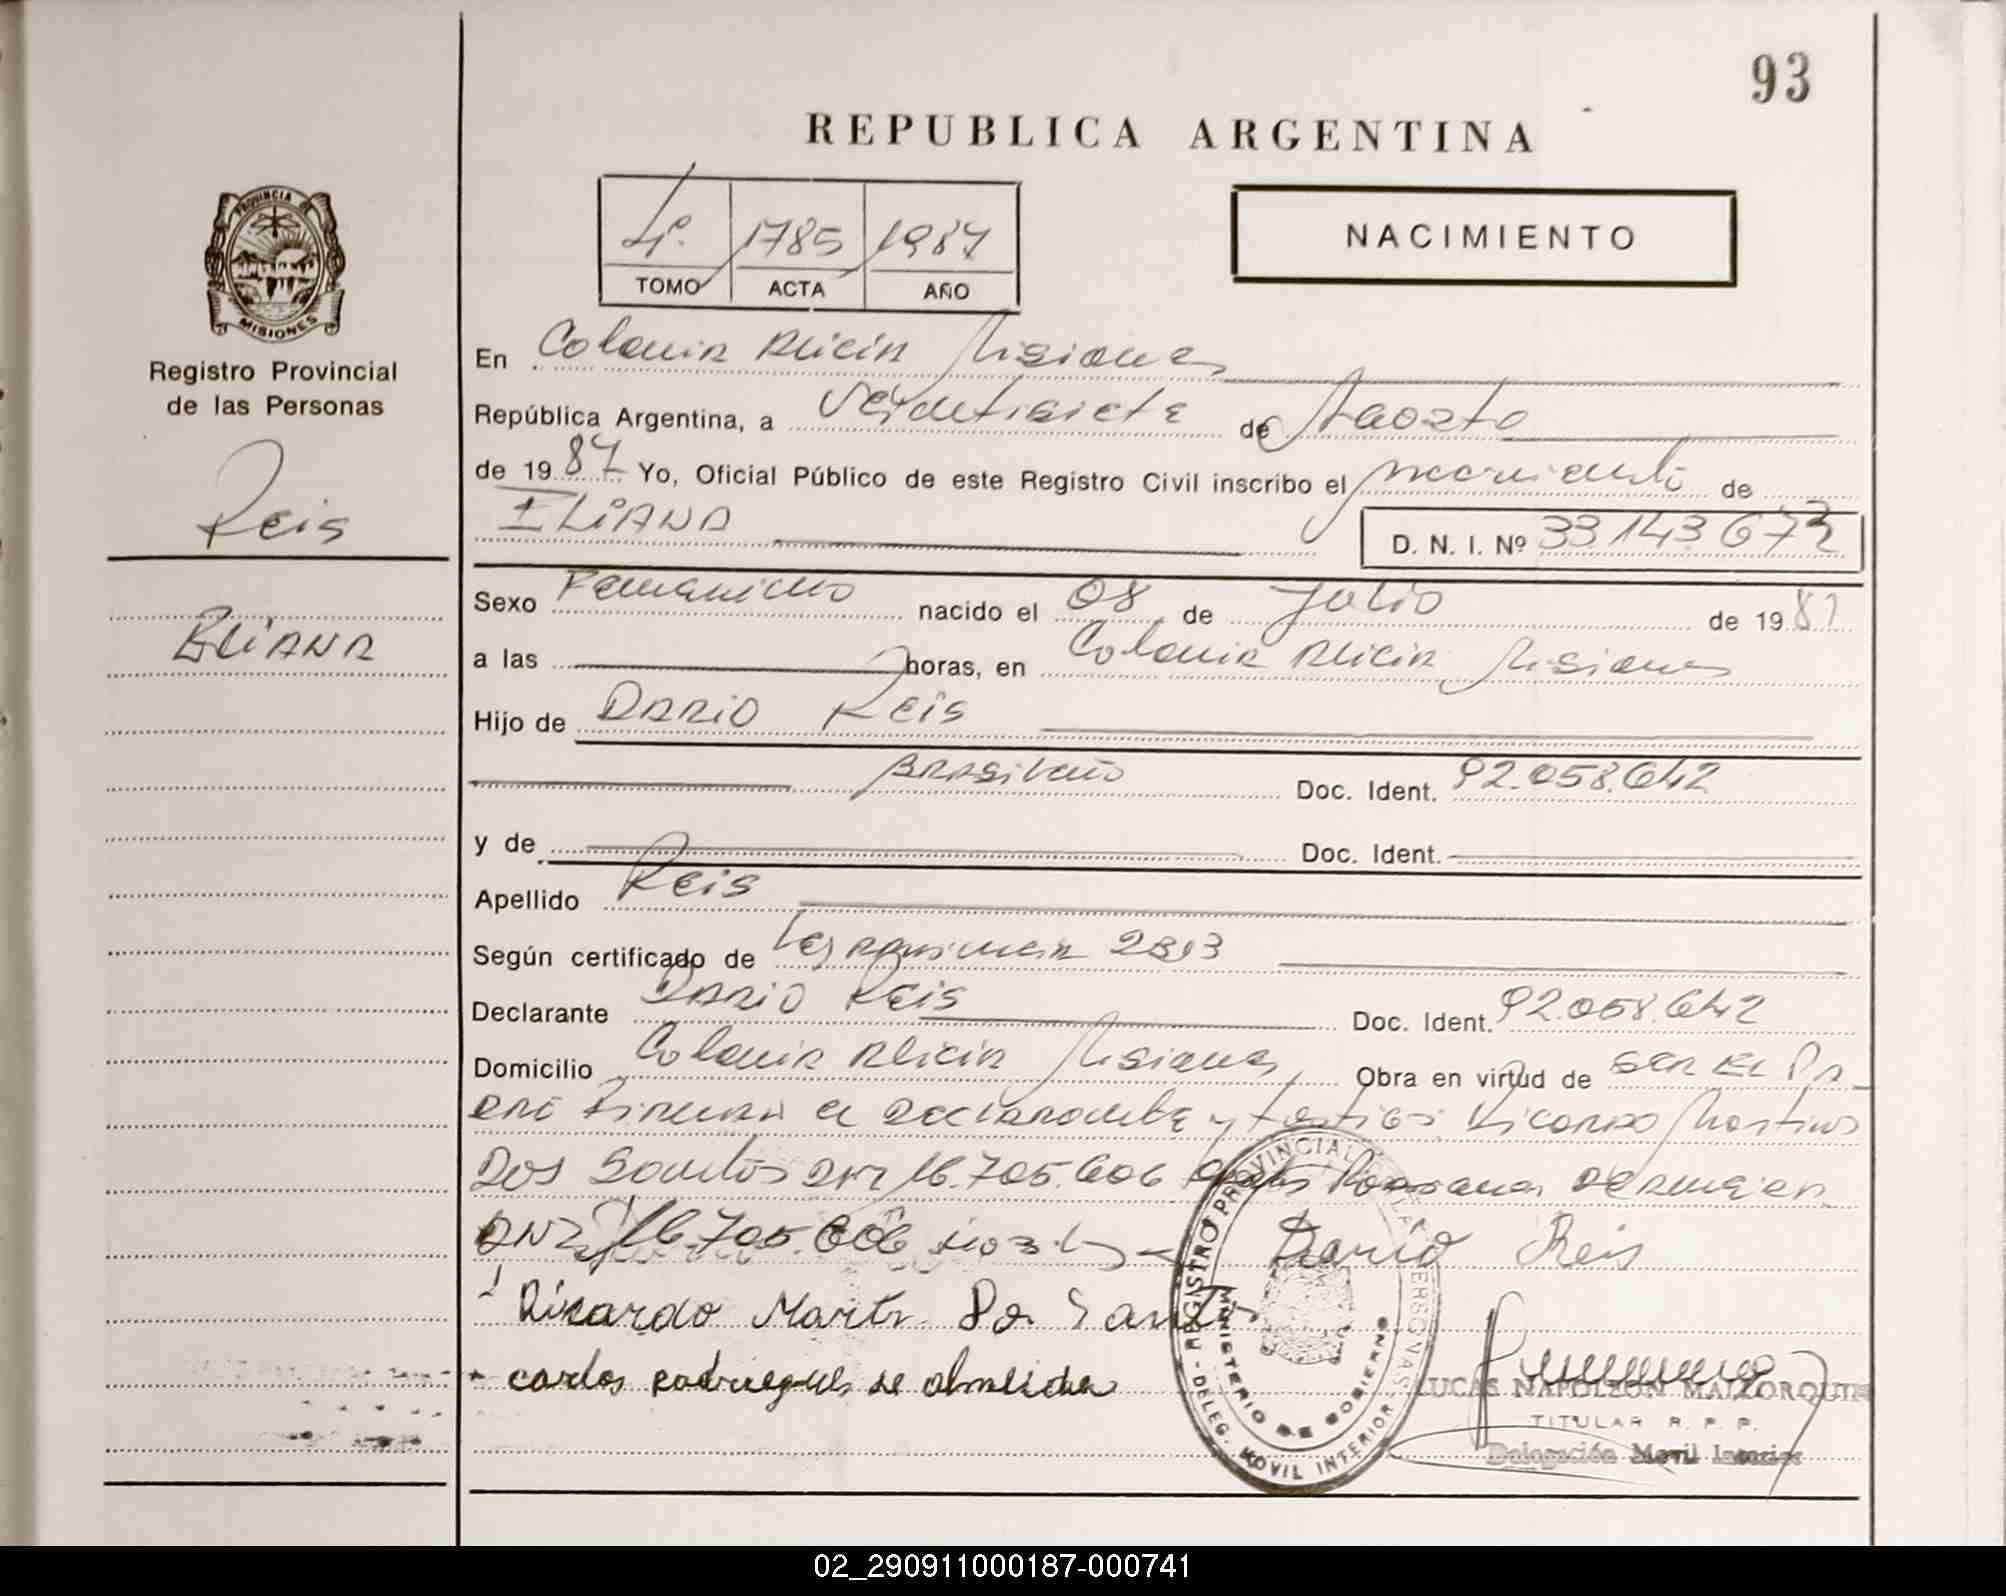 93
REPUBLICA ARGENTINA
4º 1785 1987
TOMO ACTA AÑO
NACIMIENTO
PROVINCIA DE
MISIONES
Registro Provincial
de las Personas
Reis
ELiANA
En Colonia Alicia Misiones
República Argentina, a Veintisiete de Agosto
de 1987 Yo, Oficial Público de este Registro Civil inscribo el nacimiento de
ELiANA D. N. I. Nº 33.143.673
Sexo Femenino nacido el 08 de Julio de 1987
a las horas, en Colonia Alicia Misiones
Hijo de DARIO Reis
Brasileño Doc. Ident. 92.058.642
y de Doc. Ident.
Apellido Reis
Según certificado de 2813
Declarante DARIO Reis Doc. Ident. 92.058.642
Domicilio Colonia Alicia Misiones Obra en virtud de ser el Pa
dre Firman el Declarante y testigos Ricardo Martins
Dos Santos DNI 16.705.606
DNI 16.705.606 Dario Reis
Ricardo Martin Dos Santos
carlos rodriegues de almeida
REGISTRO PROVINCIAL DE LAS PERSONAS - DELEG. MOVIL INTERIOR
MINISTERIO DE GOBIERNO
LUCAS NAPOLEON MALLORQUIN
TITULAR R. P. P.
Delegación Movil Interior
02_290911000187-000741